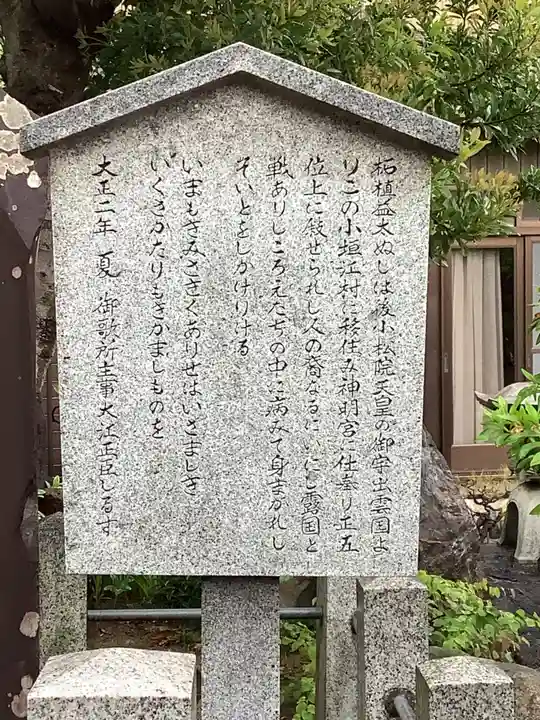 柘植益太ぬしは後小松院天皇の御宇出雲国よ
りこの小垣江村に移住み神明宮に仕奉り正五
位上に叙せられし人の裔なるに いにし露国と
戦ありしころえだちの中に病みて身まかれし
をいとをしがけりける
いまもきみさきくありせはいさましき
いくさかたりもきかましものを
大正二年 夏 御歌所主事大江正臣しるす